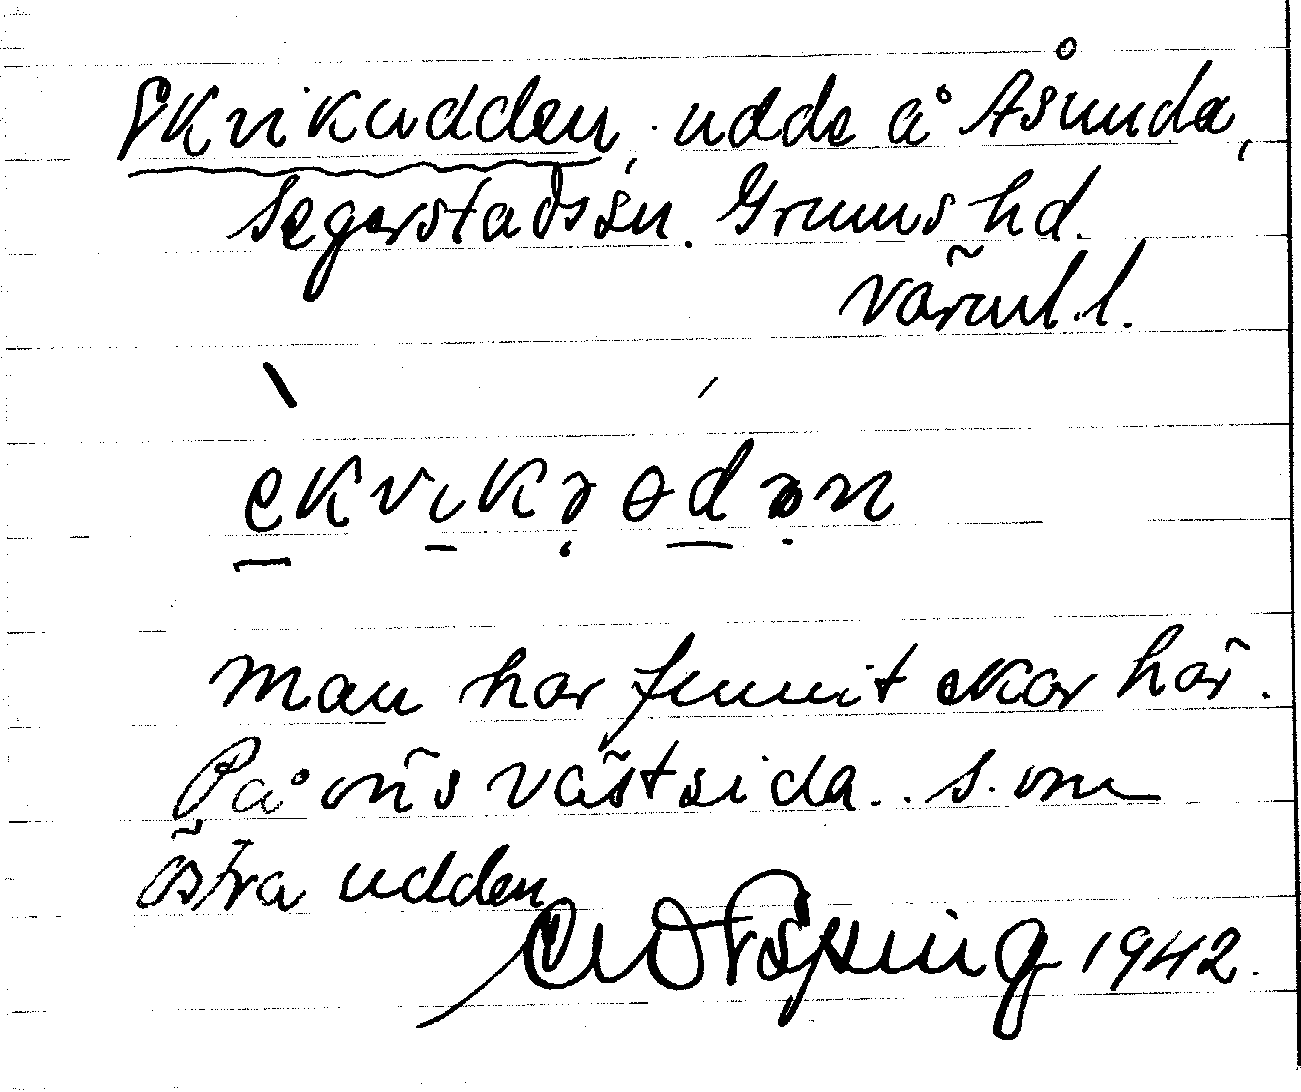 Ekvikudden, udde å Åsunda,
Segerstads sn. Grums hd.
Värml. l.
ekvikə odən
Man har funnit ekar här.
På ön's västsida. s. om
östra udden
1942.